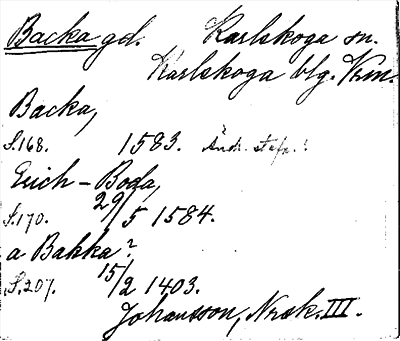 Backa gd. Karlskoga sn.
Karlskoga blg. Vrm.
Backa,
S.168. 1583. Ändr. stafn.!
Erich – Boda,
S.170. 29/5 1584.
a Bakka?
S.207. 15/2 1403.
Johansson, Norsk. III.